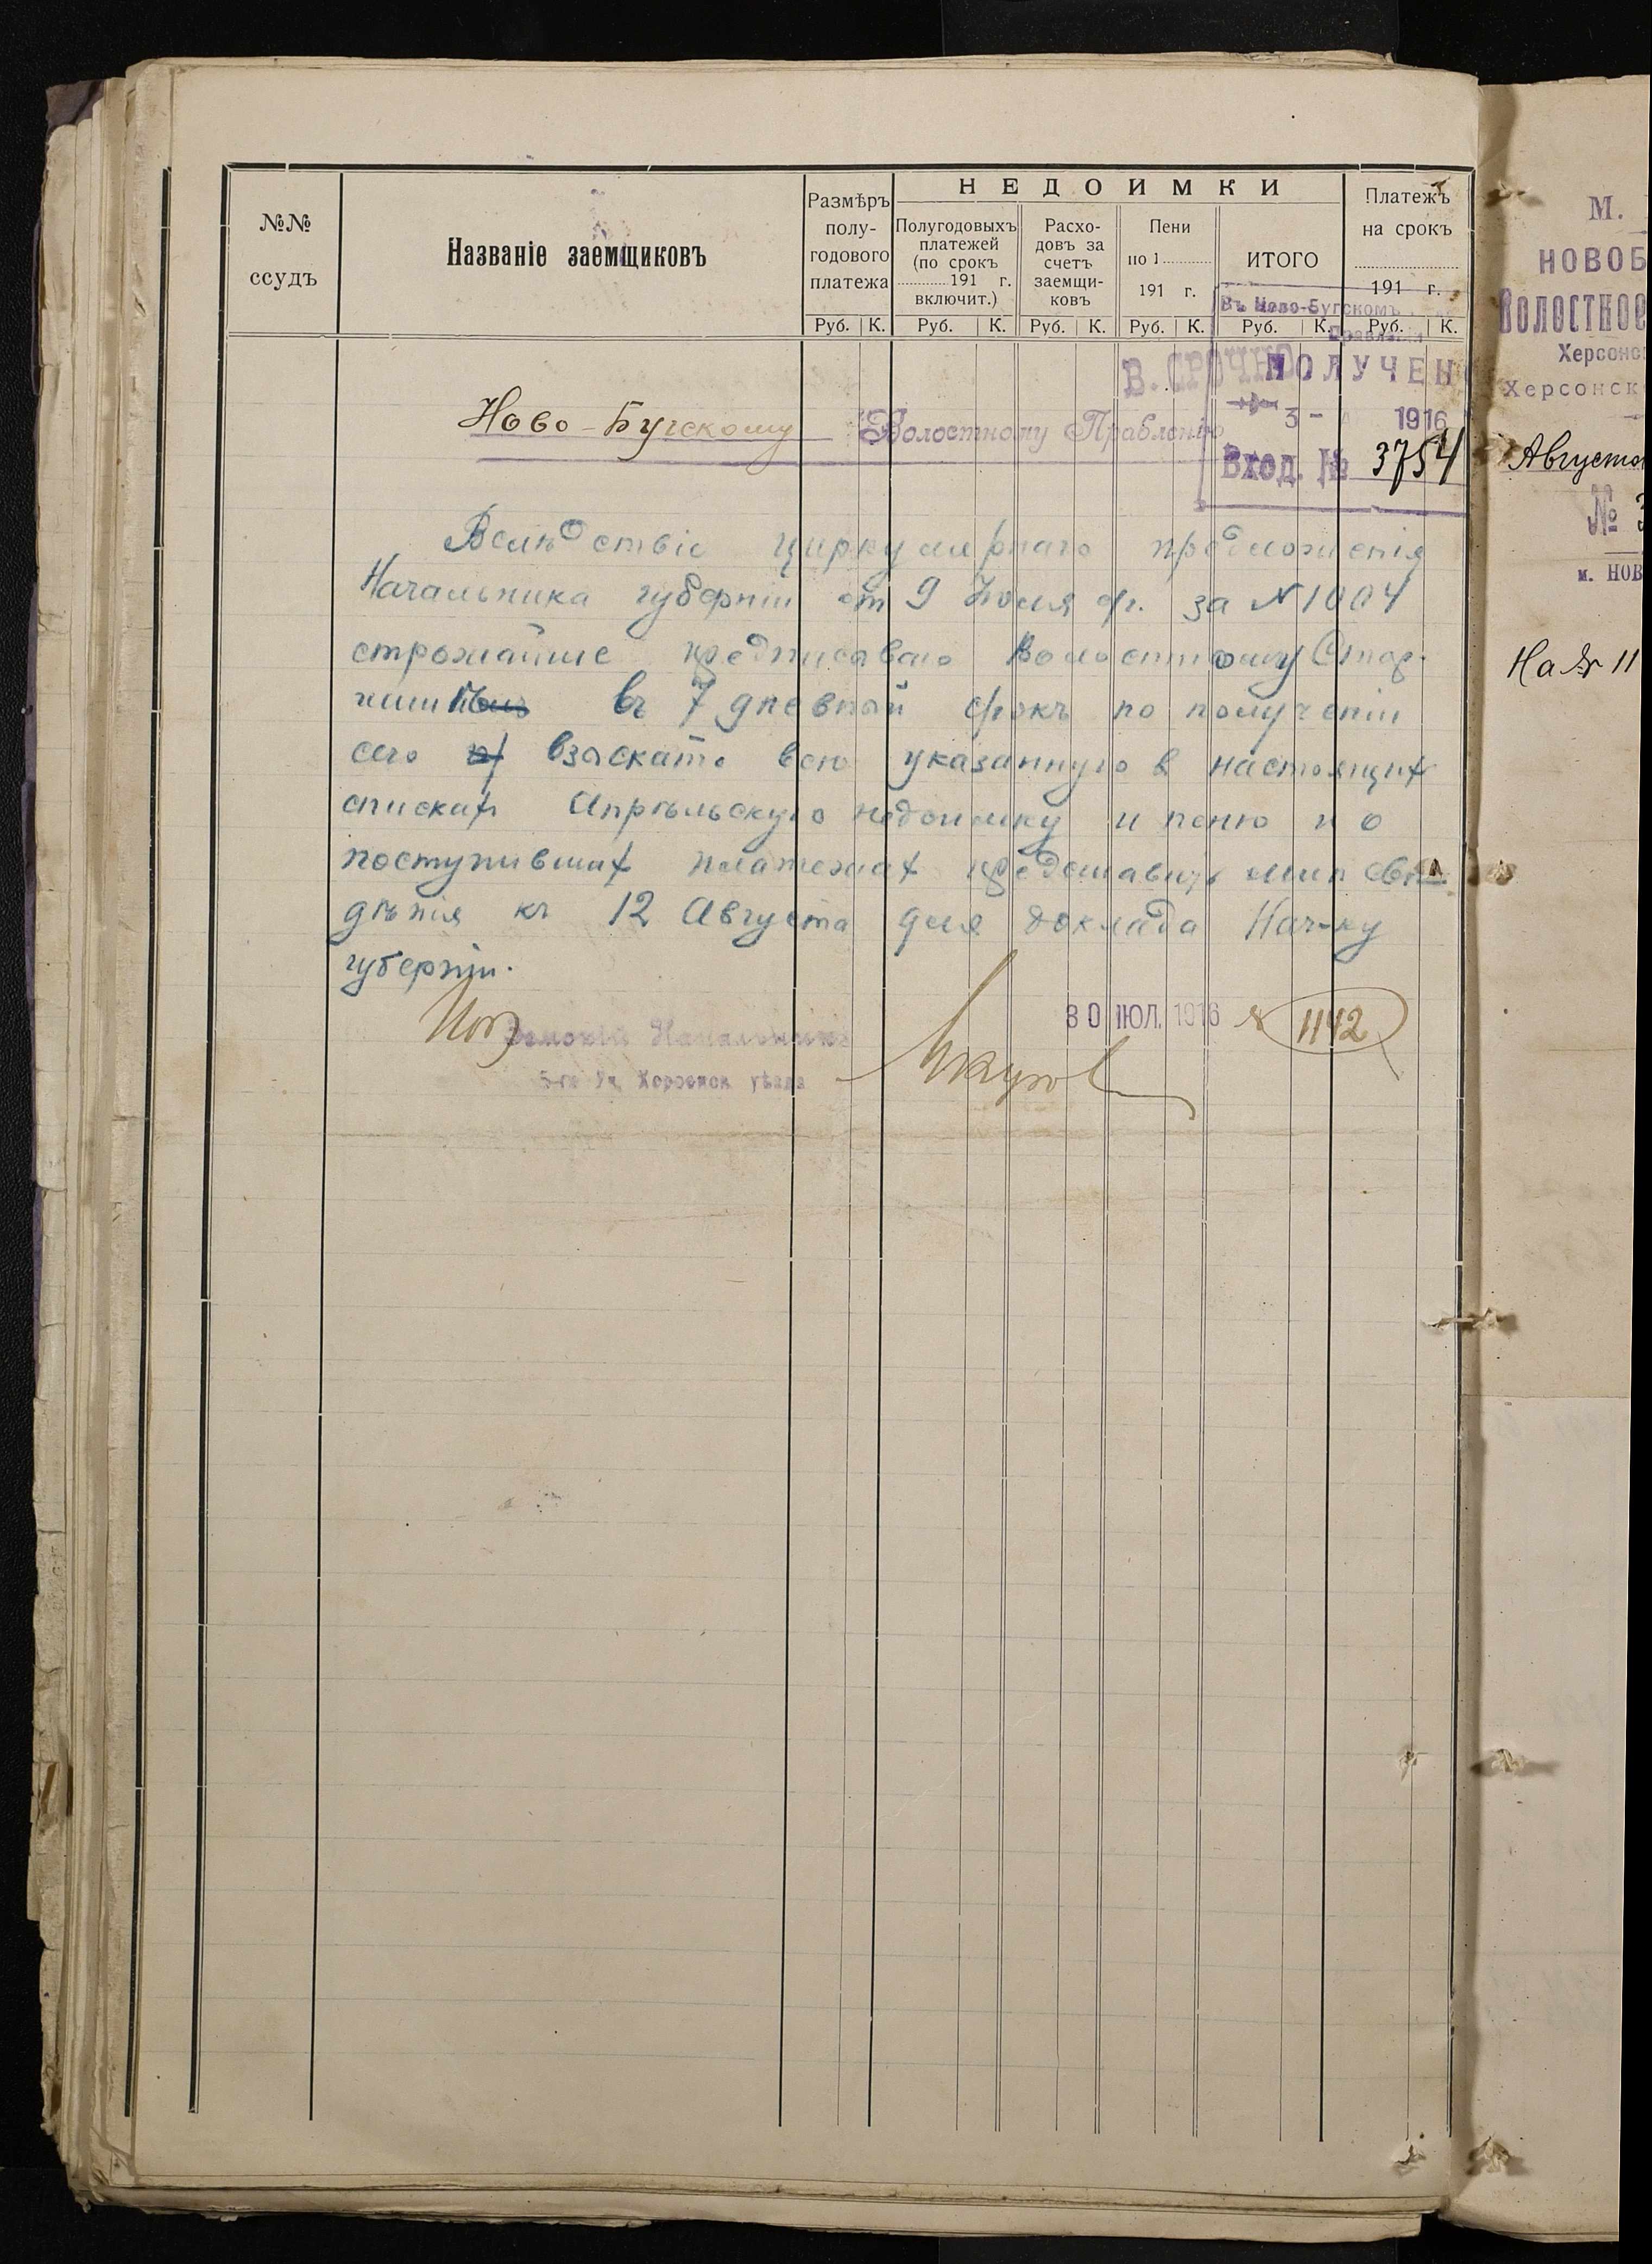 №№ ссудъ
Названіе заемщиковъ
Размѣръ полу-годового платежа
НЕДОИМКИ
Полугодовыхъ платежей (по срокъ ............ 191 г. включит.)
Расхо-довъ за счетъ заемщи-ковъ
Пени по 1............ 191 г.
ИТОГО
Платежъ на срокъ ............ 191 г.
Руб. К. Руб. К. Руб. К. Руб. К. Руб. К. Руб. К.
Въ Ново-Бугскомъ
Правленіи
В. СРОЧНО
ПОЛУЧЕН
3 - А 1916
Вход. № 3754
Ново-Бугскому Волостному Правленію
Вслѣдствіе циркулярнаго предложенія
Начальника губерніи от 9 Іюля с/г. за № 1004
строжайше предписываю Волостному Стар-
шинѣ въ 7 дневный срокъ по полученіи
сего взыскать всю указанную в настоящих
списках Апрѣльскую недоимку и пеню и о
поступивших платежах представить мнѣ свѣ-
дѣнія къ 12 Августа для доклада Нач-ку
губерніи.
Земскій Начальникъ
5-го Уч. Херсонск. уѣзда
30 ІЮЛ. 1916 № 1142
М.
НОВОБ
ВОЛОСТНОЕ
Херсонс
Херсонск
Августа
№ 3
м. НОВ
На № 11